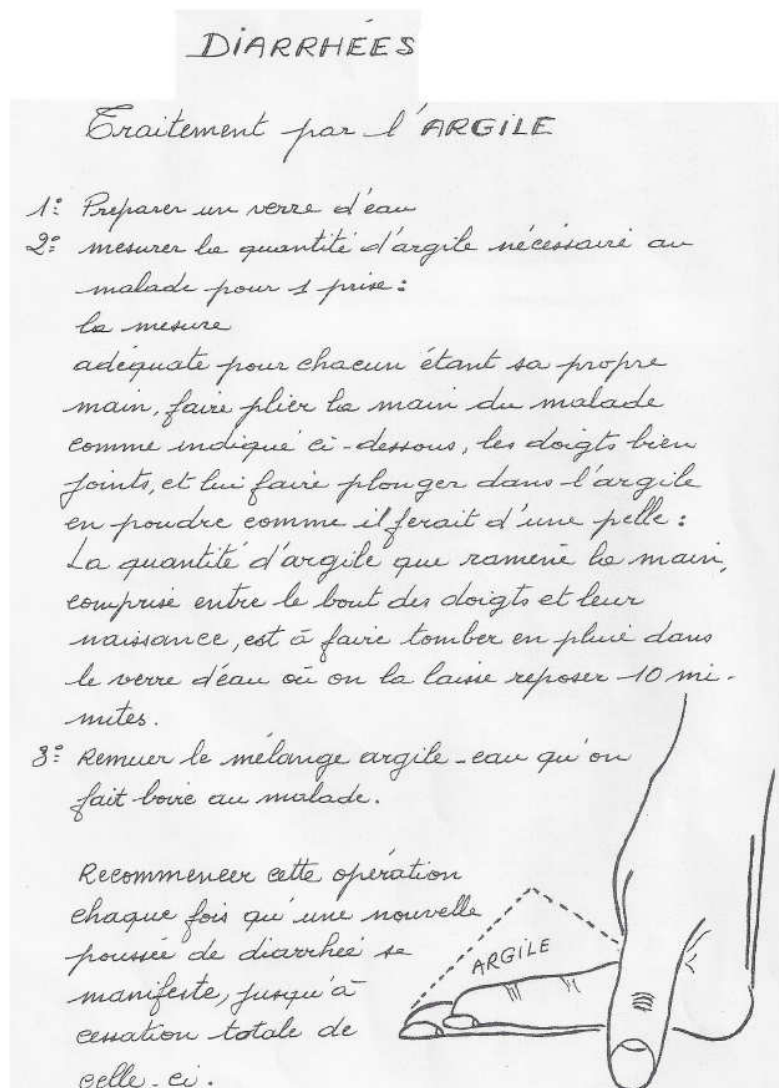 DIARRHÉES
Traitement par l'ARGILE
1º: Préparer un verre d'eau
2º: mesurer la quantité d'argile nécéssaire au
malade pour 1 prise:
la mesure
adéquate pour chacun étant sa propre
main, faire plier la main du malade
comme indiqué ci-dessous, les doigts bien
joints, et lui faire plonger dans l'argile
en poudre comme il ferait d'une pelle:
La quantité d'argile que ramène la main,
comprise entre le bout des doigts et leur
naissance, est à faire tomber en pluie dans
le verre d'eau où on la laisse reposer 10 mi-
nutes.
3º: Remuer le mélange argile-eau qu'on
fait boire au malade.
Recommencer cette opération
chaque fois qu'une nouvelle
poussée de diarrhée se
manifeste, jusqu'à
cessation totale de
celle-ci.
ARGILE